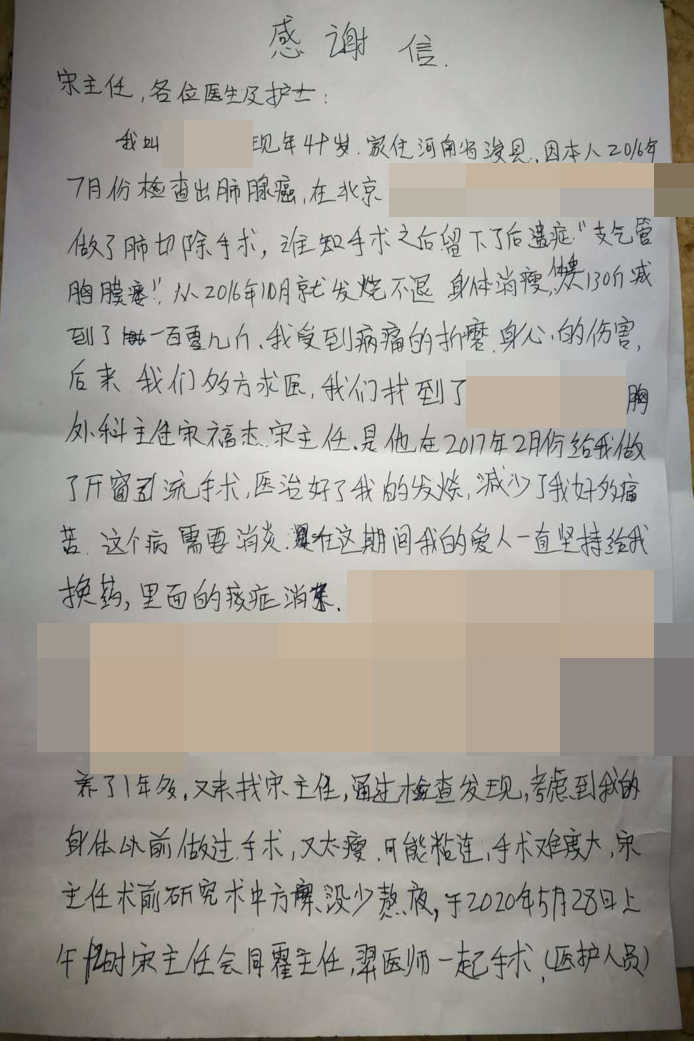 感谢信.
宋主任,各位医生及护士:
我叫 现年4十岁.家住河南省浚县.因本人2016年
7月份检查出肺腺癌,在北京
做了肺切除手术,谁知手术之后留下了后遗症"支气管
胸膜瘘".从2016年10月就发烧不退 身体消瘦, 130斤减
到了 一百零几斤.我受到病痛的折磨.身心的伤害,
后来 我们多方求医,我们找到了 胸
外科主任宋福杰.宋主任.是他在2017年2月份给我做
了开窗引流手术,医治好了我的发烧,减少了我好多痛
苦.这个病需要消炎. 在这期间我的爱人一直坚持给我
换药,里面的 症消 .
养了1年多,又来找宋主任,通过检查发现,考虑到我的
身体以前做过手术,又太瘦.可能粘连,手术难度大,宋
主任术前研究术中方案没少熬夜,于2020年5月28日上
午 时宋主任会同霍主任,翠医师一起手术,(医护人员)